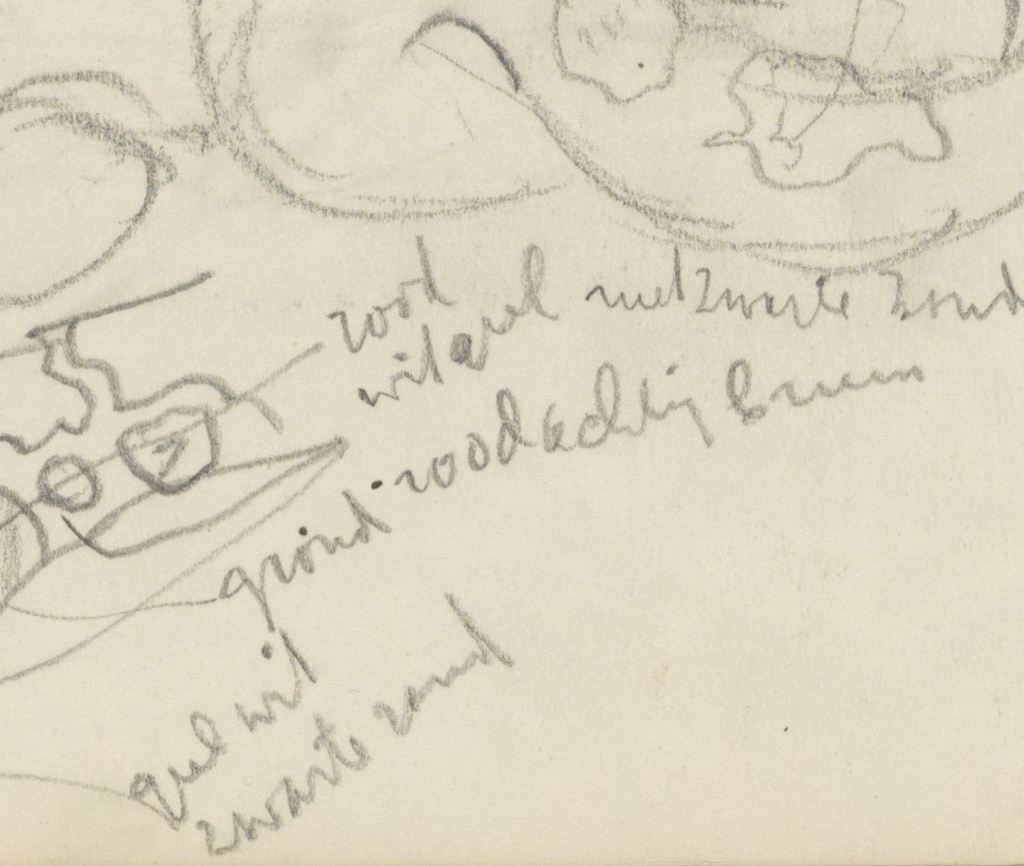 rood
wit geel met zwarte rond
grond roodachtig bruin
geel wit
zwarte rand